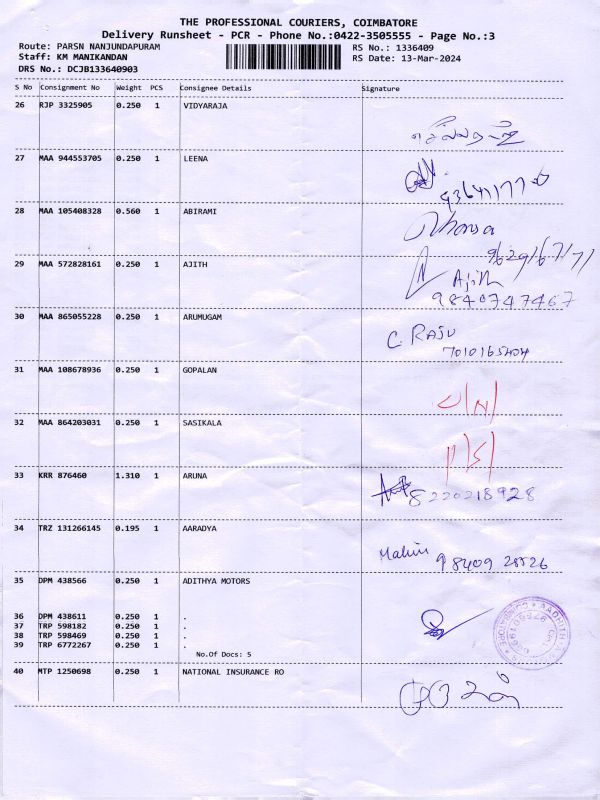 THE PROFESSIONAL COURIERS, COIMBATORE
Delivery Runsheet - PCR - Phone No.:0422-3505555 - Page No.:3
Route: PARSN NANJUNDAPURAM RS No.: 1336409
Staff: KM MANIKANDAN RS Date: 13-Mar-2024
DRS No.: DCJB133640903
S No Consignment No Weight PCS Consignee Details Signature
26 RJP 3325905 0.250 1 VIDYARAJA
27 MAA 944553705 0.250 1 LEENA
28 MAA 105408328 0.560 1 ABIRAMI
29 MAA 572828161 0.250 1 AJITH
Ajith
9840747467
30 MAA 865055228 0.250 1 ARUMUGAM
C. RAJU
7010165404
31 MAA 108678936 0.250 1 GOPALAN
32 MAA 864203031 0.250 1 SASIKALA
33 KRR 876460 1.310 1 ARUNA
8220218928
34 TRZ 131266145 0.195 1 AARADYA
98409 28526
35 DPM 438566 0.250 1 ADITHYA MOTORS
36 DPM 438611 0.250 1 .
37 TRP 598182 0.250 1 .
38 TRP 598469 0.250 1 .
39 TRP 6772267 0.250 1 .
No.Of Docs: 5
40 MTP 1250698 0.250 1 NATIONAL INSURANCE RO